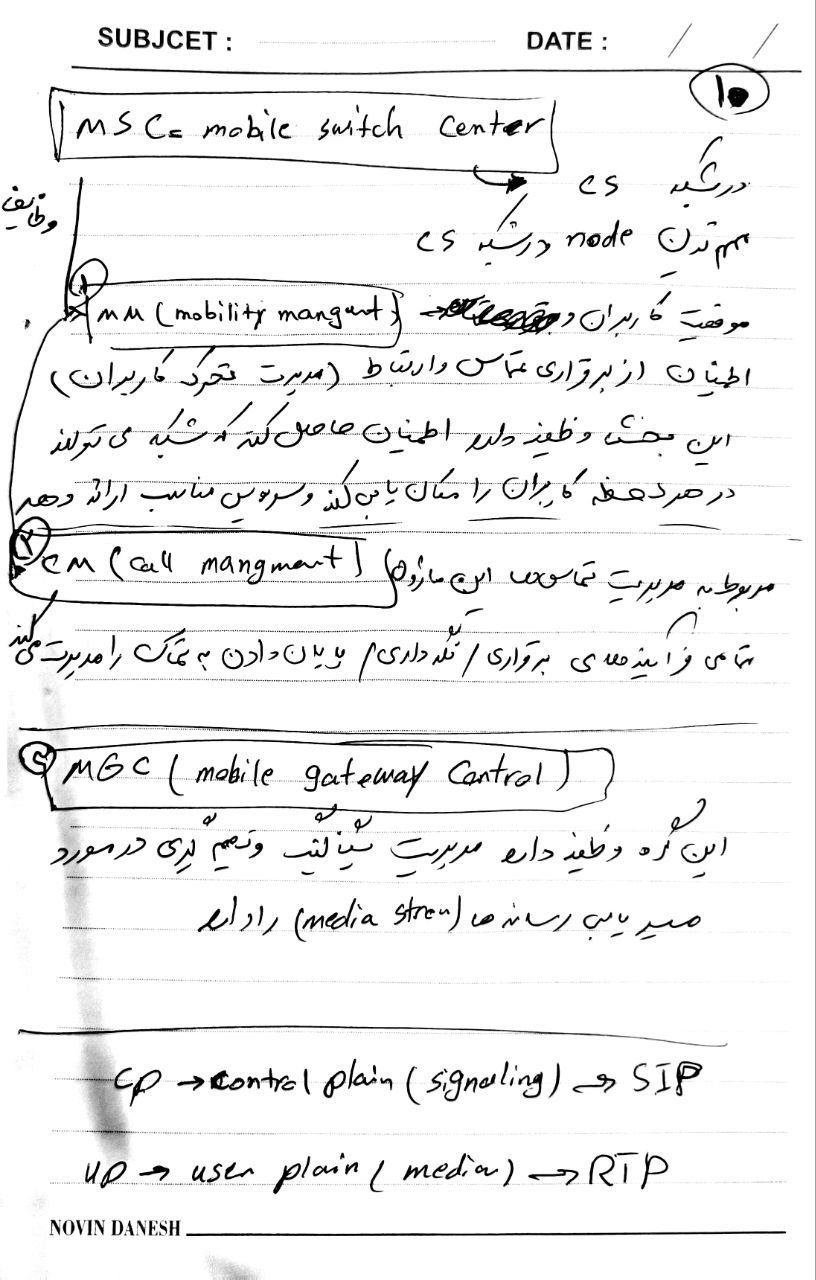 SUBJCET :
DATE : / /
۱۰
MSC = mobile switch Center
در شبکه CS
وظایف
مهم ترین node در شبکه CS
۱ MM (mobility mangant) → موقعیت کاربران و
اطمینان از برقراری تماس و ارتباط (مدیریت تحرک کاربران)
این بخش وظیفه دارد اطمینان حاصل کند که شبکه می تواند
در هر لحظه کاربران را مکان یابی کند و سرویس مناسب ارائه دهد
۲ CM (call mangment) مربوط به مدیریت تماس ها این ماژول
تمامی فرآیندهای برقراری / نگه داری / پایان دادن به تماس را مدیریت می کند
MGC (mobile gateway Control)
این گره وظیفه دارد مدیریت سیگنالینگ و تصمیم گیری در مورد
مسیر یابی رسانه ها (media strem) را دارد
CP → control plain (signalling) → SIP
UP → user plain (media) → RTP
NOVIN DANESH